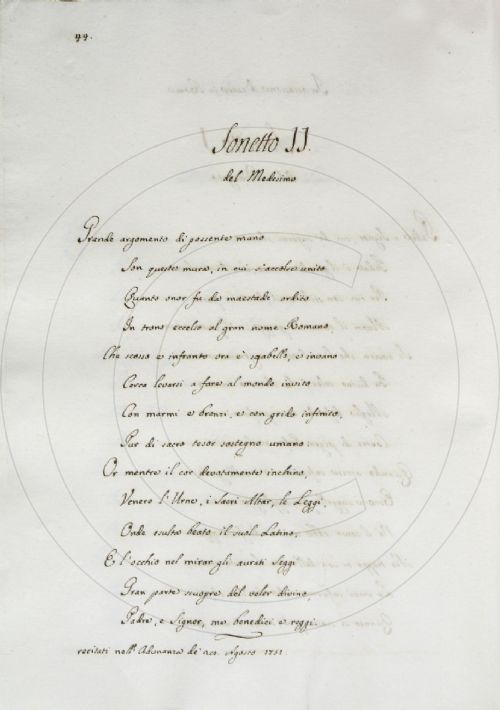 44.
Sonetto II.
del Medesimo
Grande argomento di possente mano
Son queste mura, in cui s'accolse unito
Quanto onor fu da maestade ordito
In trono eccelso al gran nome Romano
Che scosso e infranto ora è sgabello, e invano
Cerca levarsi a fare al mondo invito
Con marmi e bronzi, e con grido infinito,
Pur di sacro tesor sostegno umano
Or mentre il cor devotamente inchino,
Venero l'Urne, i Sacri Altar, le Leggi,
Onde esulta beato il suol Latino,
E l'occhio nel mirar gli aurati seggi
Gran parte scuopre del voler divino,
Padre, e Signor, me benedici e reggi.
recitati nell' Adunanza de' 20. Agosto 1751